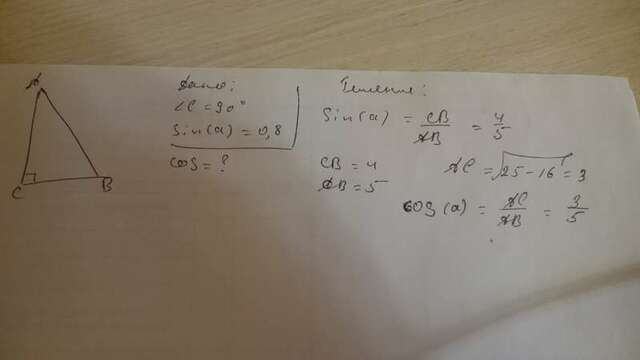 A
C
B
Дано:
∠C = 90°
Sin(a) = 0,8
cos = ?
Решение:
Sin(a) = CB/AB = 4/5
CB = 4
AB = 5
AC = √25-16 = 3
cos(a) = AC/AB = 3/5